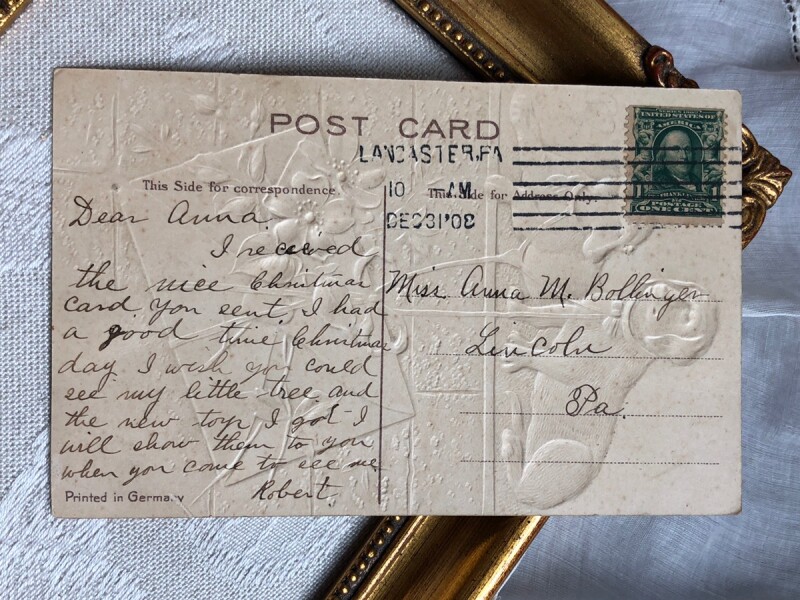 POST CARD
LANCASTER, PA
10 AM
DEC 31 '08
UNITED STATES OF
AMERICA
FRANKLIN
POSTAGE
ONE CENT
This Side for correspondence
This Side for Address Only.
Dear Anna
I received
the nice Christmas
card. You sent, I had
a good time Christmas
day I wish you could
see my little tree and
the new toys I got I
will show them to you
when you come to see me.
Robert.
Miss. Anna M. Bollinger
Lincoln
Pa.
Printed in Germany